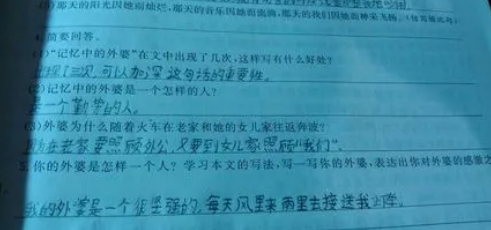 (3)那天的阳光因她而灿烂,那天的音乐因她而流淌,那天的我们因她而神采飞扬。(仿写排比句)
4.简要回答。
(1)“记忆中的外婆”在文中出现了几次,这样写有什么好处?
出现了三次,可以加深这句话的重要性。
(2)记忆中的外婆是一个怎样的人?
是一个勤劳的人。
(3)外婆为什么随着火车在老家和她的女儿家往返奔波?
因为在老家要照顾外公,又要到女儿家照顾“我们”。
5.你的外婆是怎样一个人?学习本文的写法,写一写你的外婆,表达出你对外婆的感激之
我的外婆是一个很坚强的,每天风里来雨里去接送我上降。